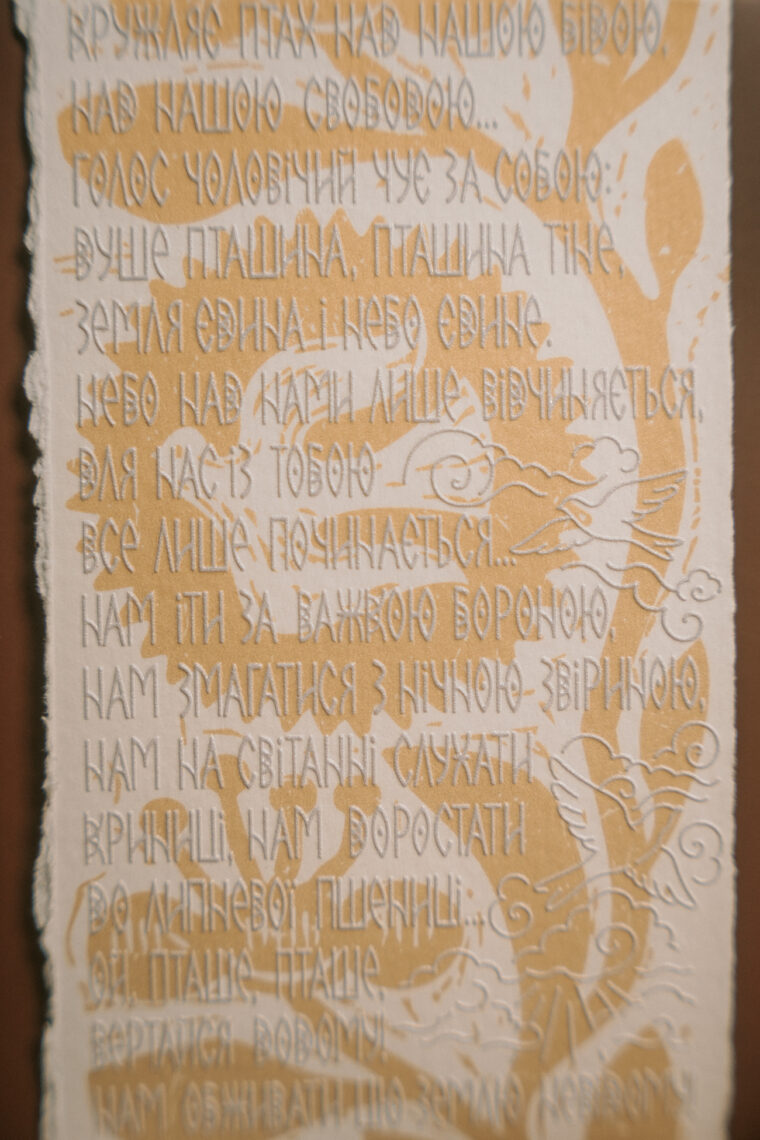 КРУЖЛЯЄ ПТАХ НАД НАШОЮ БІДОЮ,
НАД НАШОЮ СВОБОДОЮ...
ГОЛОС ЧОЛОВІЧИЙ ЧУЄ ЗА СОБОЮ:
ДУШЕ ПТАШИНА, ПТАШИНА ТІНЕ,
ЗЕМЛЯ ЄДИНА І НЕБО ЄДИНЕ.
НЕБО НАД НАМИ ЛИШЕ ВІДЧИНЯЄТЬСЯ,
ДЛЯ НАС ІЗ ТОБОЮ
ВСЕ ЛИШЕ ПОЧИНАЄТЬСЯ...
НАМ ІТИ ЗА ВАЖКОЮ БОРОНОЮ,
НАМ ЗМАГАТИСЯ З НІЧНОЮ ЗВІРИНОЮ,
НАМ НА СВІТАННІ СЛУХАТИ
КРИНИЦІ, НАМ ДОРОСТАТИ
ДО ЛИПНЕВОЇ ПШЕНИЦІ...
ОЙ, ПТАШЕ, ПТАШЕ,
ВЕРТАЙСЯ ДОДОМУ!
НАМ ОБЖИВАТИ ЦЮ ЗЕМЛЮ НЕВІДОМУ!